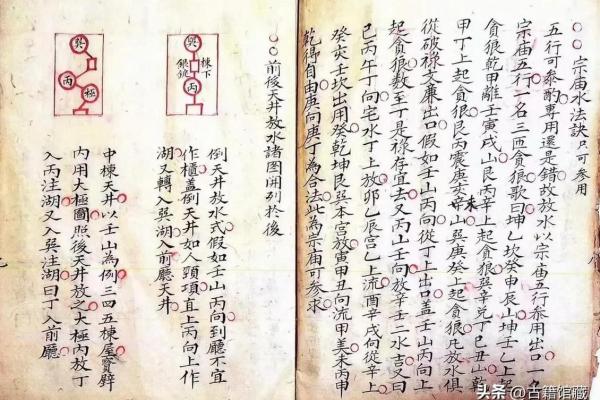 宗庙水法訣只可参用
五行可叅酌專用還是錯故放水以宗庙五行叅用出口一名
宗庙五行一名三匝貪狼歌曰坤乙坎癸申辰山坤壬乙上起
貪狼乾甲離壬寅戌山艮丙辛上起貪狼巽辛兑丁巳丑山乾
甲丁上起貪狼艮丙震庚亥未山巽庚癸上起貪狼凡放水俱
從破祿文廉出口假如壬山丙向從丁上出口盖壬山丙向上
起貪狼数至丁是禄存宜去又丙山壬向放辛壬二水吉又曰
巳丙午丁向宅水丁上放卯乙辰宫乙上流酉辛戌向從辛上
癸亥壬坎出用癸乾坤艮巽本宫放寅甲丑向流甲美未丙申
乾得自由庚向庚丁為合法此為宗庙可参求
前後天井放水諸图開列於後
巽
棟下
銀錠
丙
倒天井放水式假如壬山丙向到廳不宜
作櫃盖倒天井如人頸項直上丙向上作
湖又轉入巽湖入前廳天井
巽
丙
極
中棟天井以壬山為例三四五棟屋寳辟
内用太極圖照後天井放之太極内放丁
入丙注湖又入巽注湖曰丁入前廳
头条@古籍馆藏